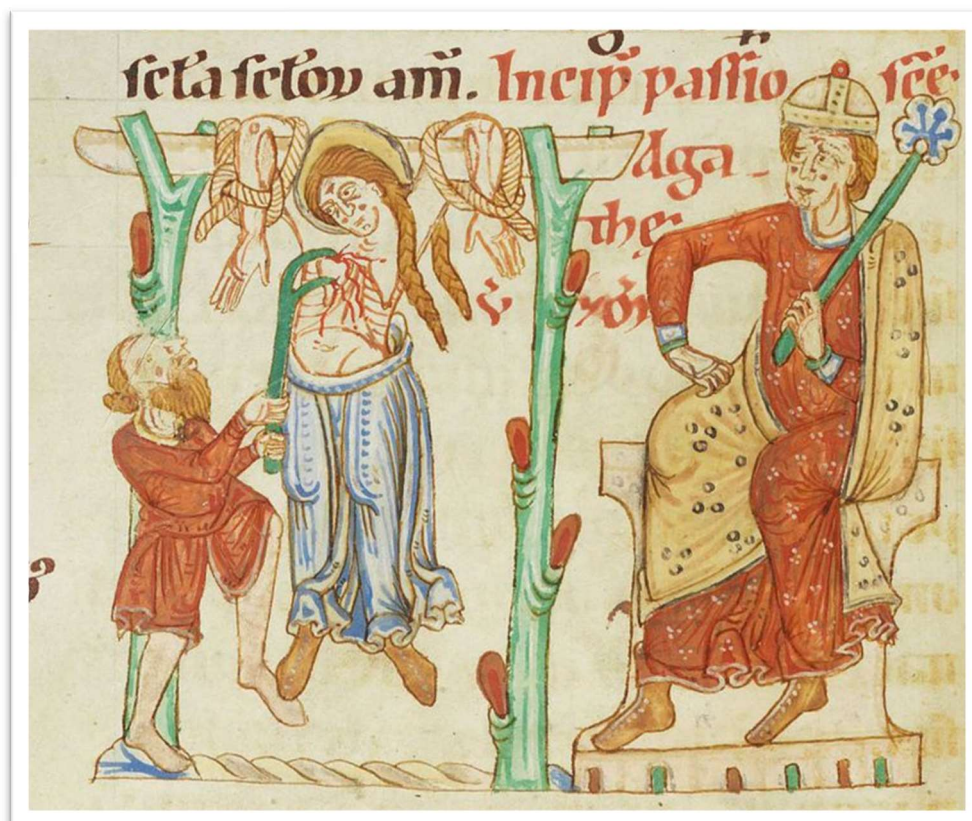 ſcl̄a ſcl̄oꝝ am̄. Incip̄ paſſio ſc̄e
aga-
the